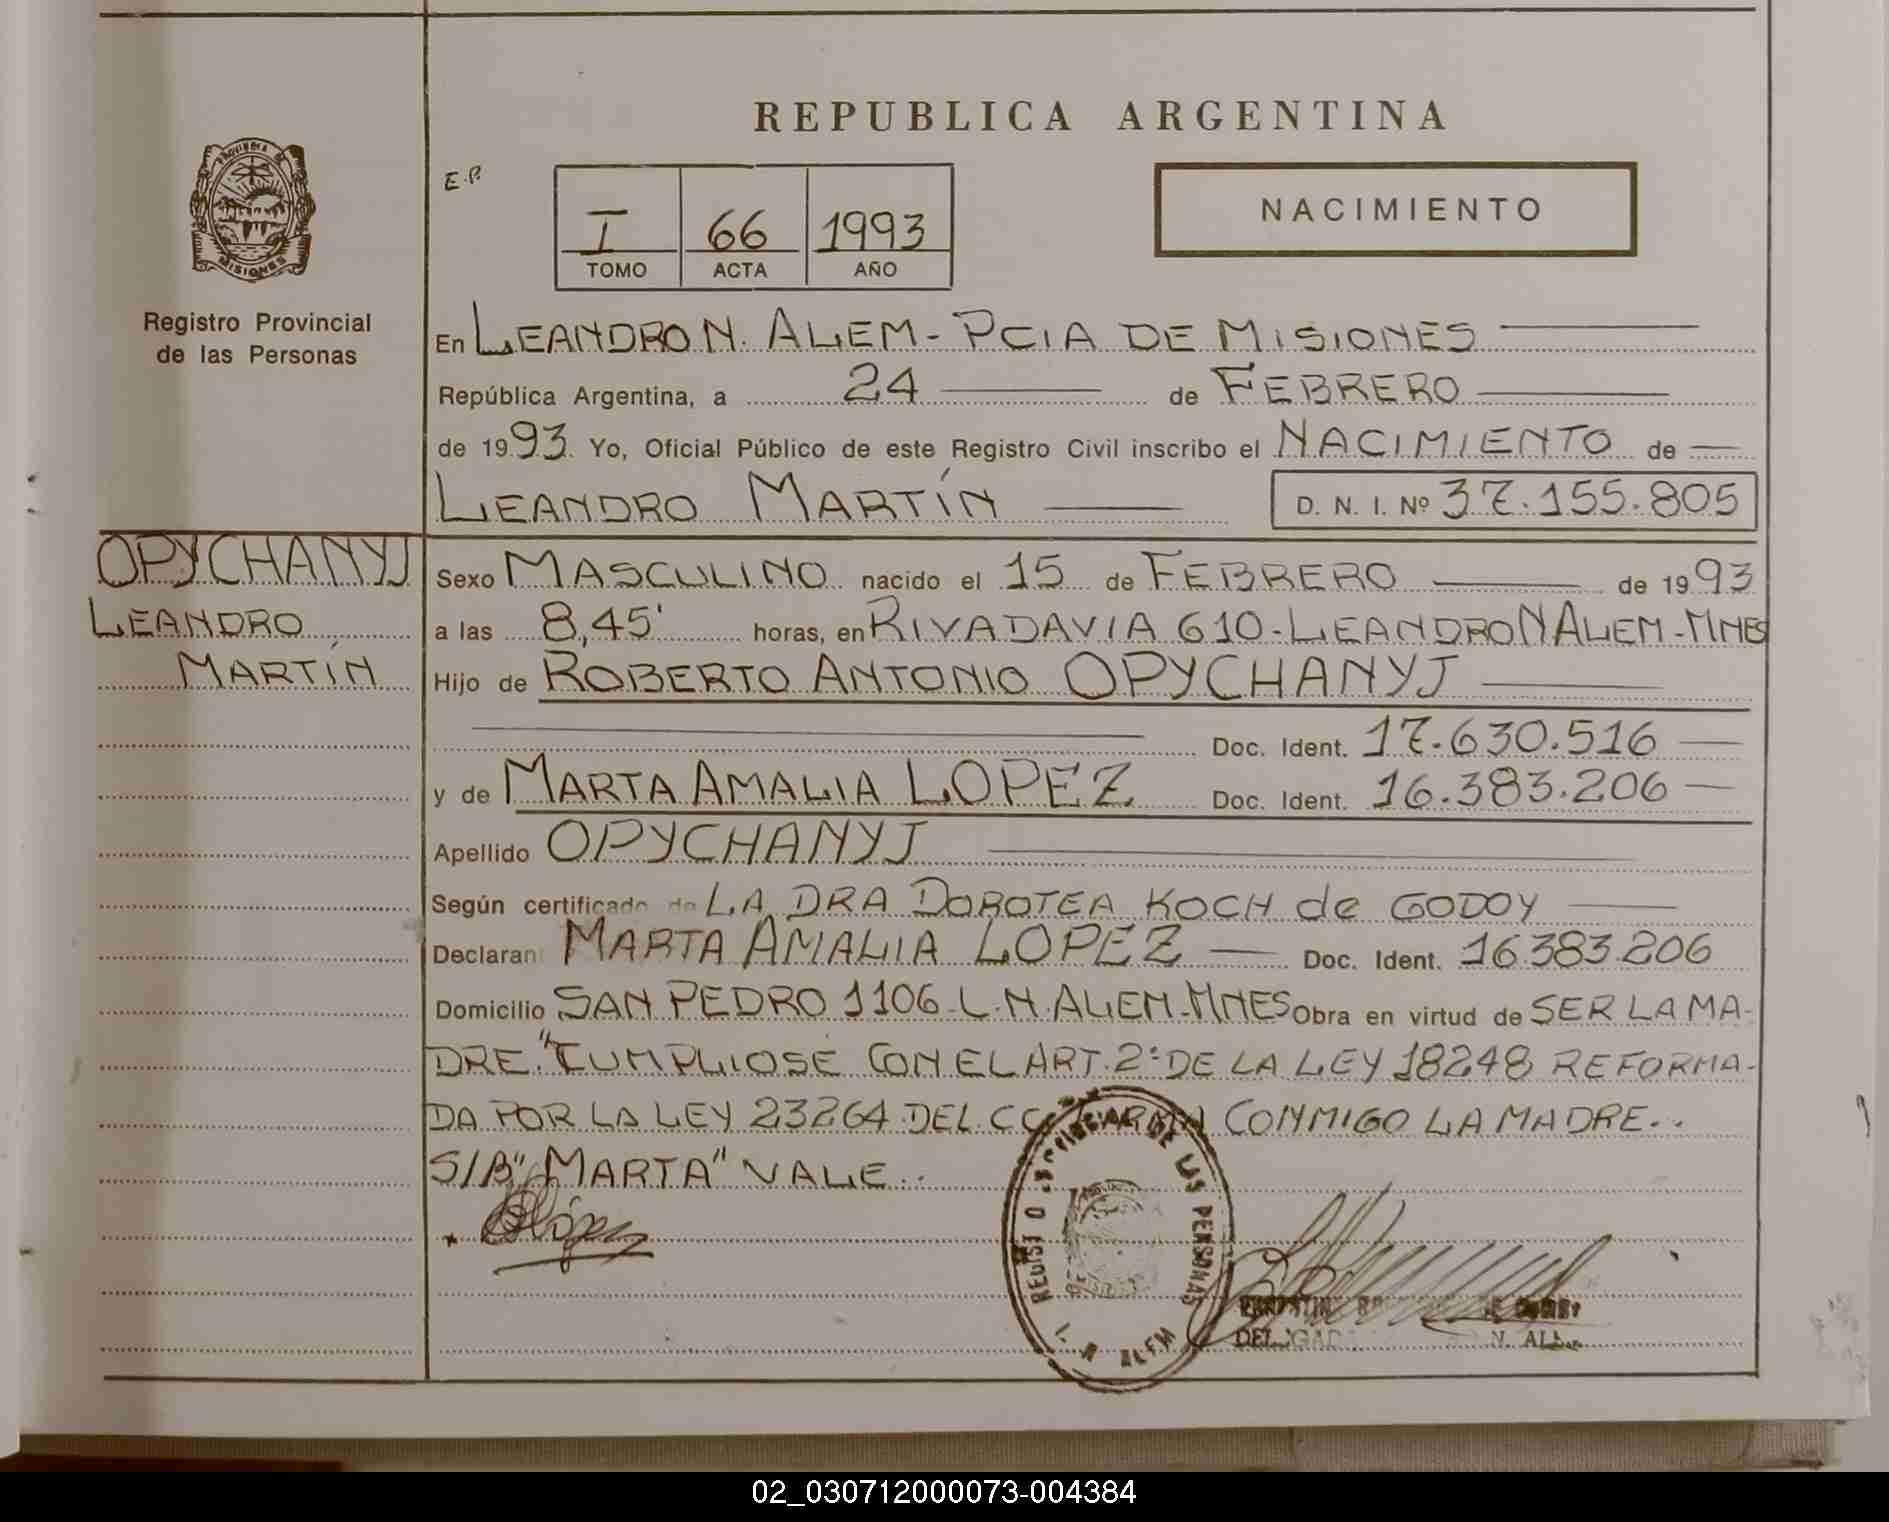 REPUBLICA ARGENTINA
PROVINCIA DE
MISIONES
Registro Provincial
de las Personas
E.P.
I 66 1993
TOMO ACTA AÑO
NACIMIENTO
En LEANDRO N. ALEM - PCIA DE MISIONES
República Argentina, a 24 de FEBRERO
de 1993. Yo, Oficial Público de este Registro Civil inscribo el NACIMIENTO de
LEANDRO MARTÍN D. N. I. Nº 37.155.805
OPYCHANYJ
LEANDRO
MARTÍN
Sexo MASCULINO nacido el 15 de FEBRERO de 1993
a las 8,45' horas, en RIVADAVIA 610 - LEANDRO N ALEM - MNES
Hijo de ROBERTO ANTONIO OPYCHANYJ
Doc. Ident. 17.630.516
y de MARTA AMALIA LOPEZ Doc. Ident. 16.383.206
Apellido OPYCHANYJ
Según certificado de LA DRA DOROTEA KOCH de GODOY
Declaran MARTA AMALIA LOPEZ Doc. Ident. 16383.206
Domicilio SAN PEDRO 1106 - L. N. ALEM - MNES Obra en virtud de SER LA MA-
DRE. "CUMPLIOSE CON EL ART. 2º DE LA LEY 18248 REFORMA-
DA POR LA LEY 23264 DEL CC. FIRMA CONMIGO LA MADRE..
S/B" MARTA" VALE..
López
DE LAS PERSONAS
ALEM
02_030712000073-004384